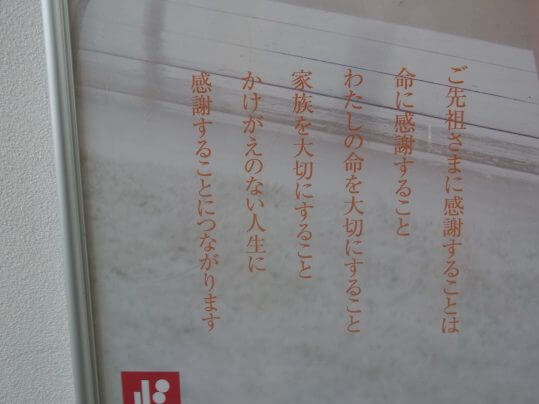 ご先祖さまに感謝することは
命に感謝すること
わたしの命を大切にすること
家族を大切にすること
かけがえのない人生に
感謝することにつながります